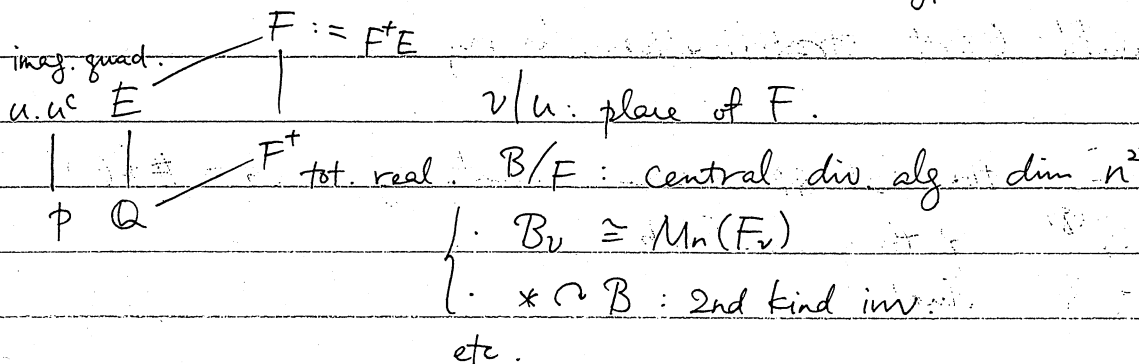 F := F⁺E
imag. quad.
u.uᶜ E
v|u : place of F.
F⁺ tot. real. B/F : central div. alg. dim n²
p Q
· B_v ≅ Mn(F_v)
· * ↷ B : 2nd kind inv.
etc.